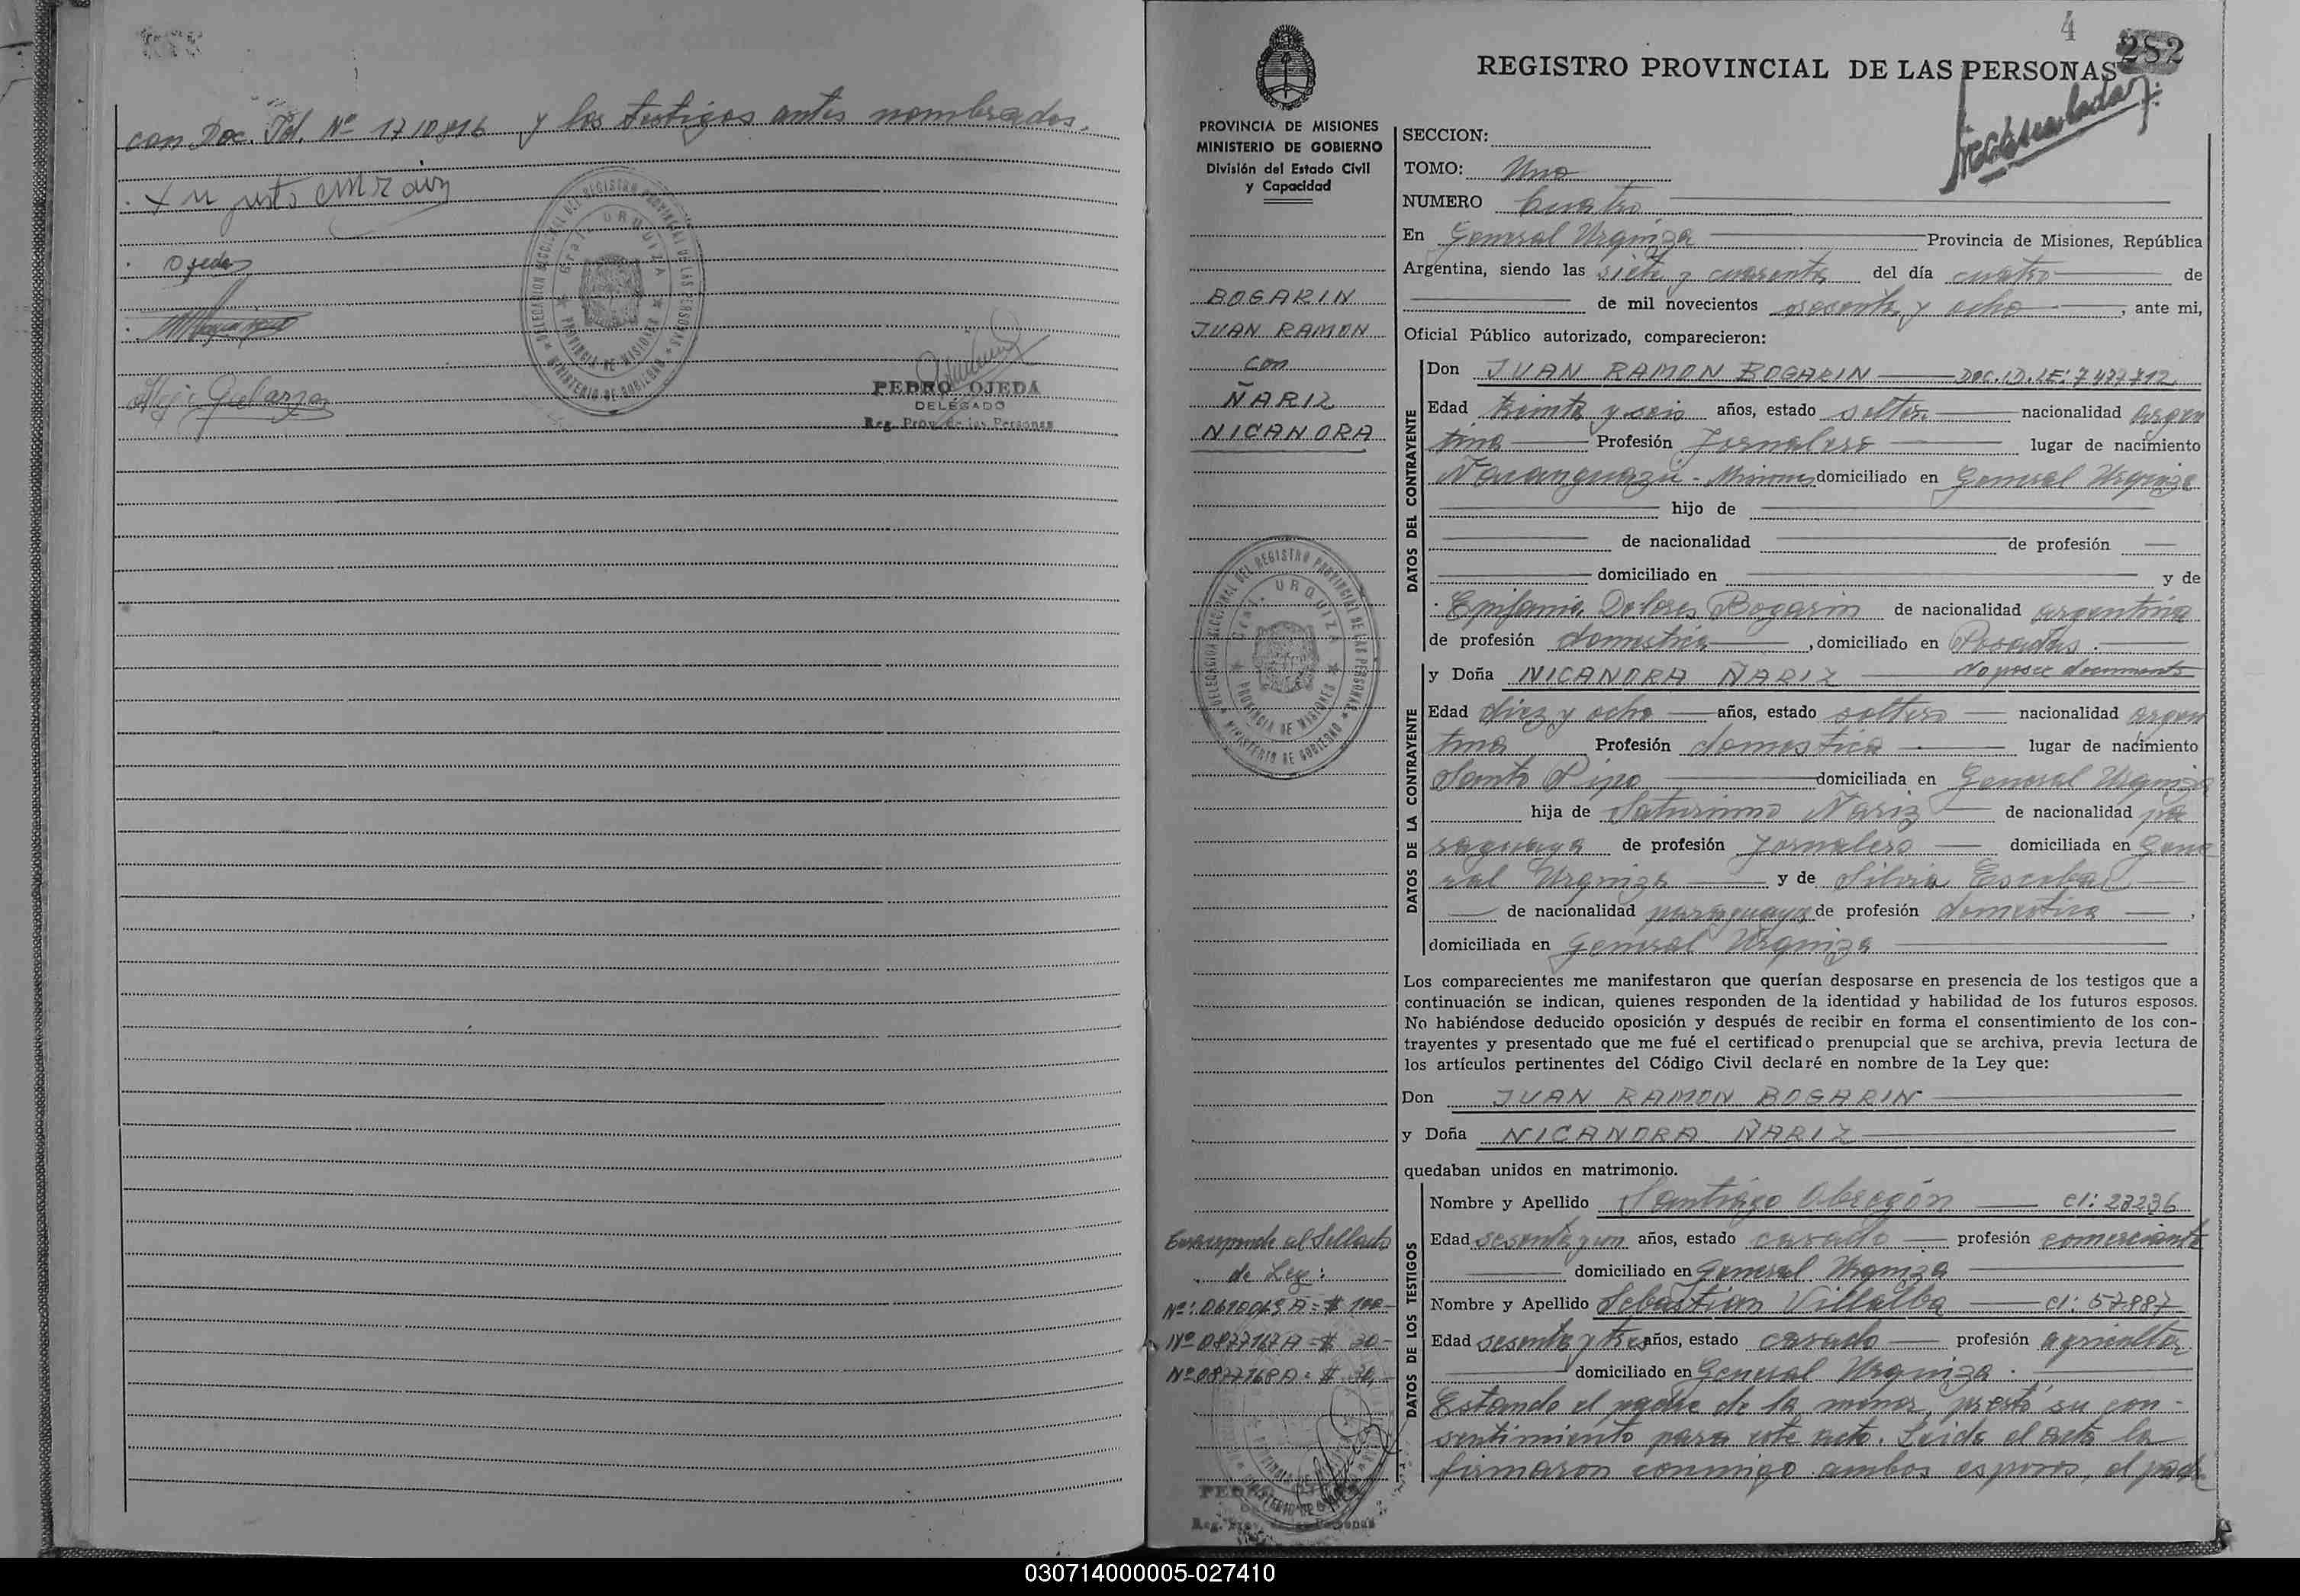 con Doc. Id. Nº 1710816 y los testigos antes nombrados.
Ojeda
PEDRO OJEDA
DELEGADO
Reg. Prov. de las Personas
4
282
REGISTRO PROVINCIAL DE LAS PERSONAS
PROVINCIA DE MISIONES
MINISTERIO DE GOBIERNO
División del Estado Civil
y Capacidad
BOGARIN
JUAN RAMON
con
ÑARIZ
NICANORA
SECCION:
TOMO: Uno
NUMERO Cuatro
En General Urquiza Provincia de Misiones, República
Argentina, siendo las siete y cuarenta del día cuatro de
de mil novecientos sesenta y ocho, ante mi,
Oficial Público autorizado, comparecieron:
DATOS DEL CONTRAYENTE
Don JUAN RAMON BOGARIN DOC. ID. LE: 7479712
Edad treinta y seis años, estado soltero nacionalidad argen
tina Profesión Jornalero lugar de nacimiento
Ñacanguazú - Misiones domiciliado en General Urquiza
hijo de
de nacionalidad de profesión
domiciliado en y de
Epifania Dolores Bogarin de nacionalidad argentina
de profesión domestica, domiciliado en Posadas.
DATOS DE LA CONTRAYENTE
y Doña NICANORA ÑARIZ No posee documento
Edad diez y ocho años, estado soltera nacionalidad argen
tina Profesión domestica lugar de nacimiento
Santo Pipo domiciliada en General Urquiza
hija de Saturnino Ñariz de nacionalidad pa
raguaya de profesión Jornalero domiciliada en Gene
ral Urquiza y de Silvia Escobar
de nacionalidad paraguaya de profesión domestica,
domiciliada en General Urquiza
Los comparecientes me manifestaron que querían desposarse en presencia de los testigos que a
continuación se indican, quienes responden de la identidad y habilidad de los futuros esposos.
No habiéndose deducido oposición y después de recibir en forma el consentimiento de los con-
trayentes y presentado que me fué el certificado prenupcial que se archiva, previa lectura de
los artículos pertinentes del Código Civil declaré en nombre de la Ley que:
Don JUAN RAMON BOGARIN
y Doña NICANORA ÑARIZ
quedaban unidos en matrimonio.
DATOS DE LOS TESTIGOS
Nombre y Apellido Santiago Obregón CI: 27236
Edad sesenta y un años, estado casado profesión comerciante
domiciliado en General Urquiza
Nombre y Apellido Sebastian Villalba CI: 57887
Edad sesenta y tres años, estado casado profesión agricultor
domiciliado en General Urquiza.
Estando el padre de la menor, prestó su con-
sentimiento para este acto. Leida el acta la
firmaron conmigo ambos esposos, el padre
Corresponde al Sellado
de Ley:
Nº: 0610069 A = $ 100-
Nº 0877167 A = $ 30-
Nº 0877168 A = $ 30,-
PEDRO OJEDA
Reg. Prov. de las Personas
030714000005-027410